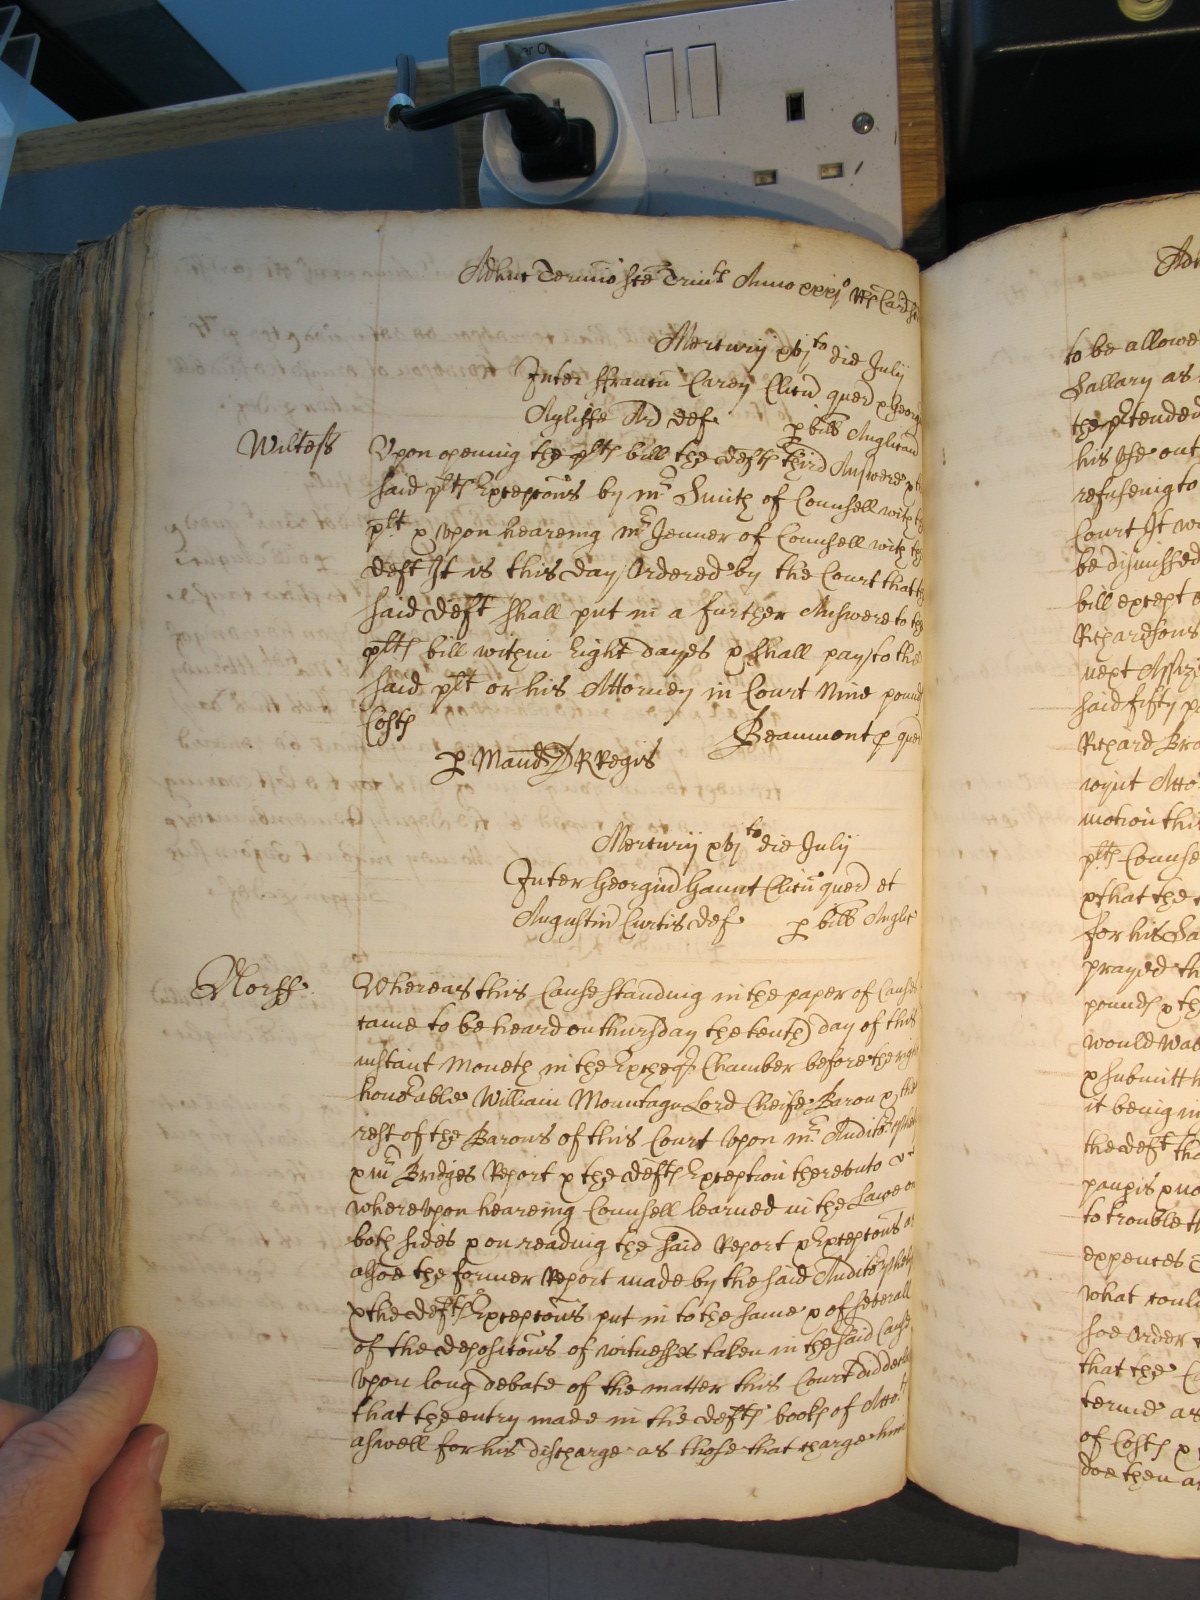 Adhuc Termino Sce Trinit Anno xxxjo RRs Car Sc
Mercurij xvjto die July
Inter ffrancu Carey Clicu quer & Georg
Ayliffe Ar def p bill Anglican
Wiltess
Upon opening the plts bill the defts third Answere &
said plts Exceptions by mr Smith of Counsell with the
plt & upon heareing mr Jenner of Counsell with the
deft It is this day Ordered by the Court that the
said deft shall put in a further Answere to the
plts bill within Eight dayes & shall pay to the
said plt or his Attorney in Court Nine pound
Costs Beaumont p quer
p Mand R Regis
Mercurij xvjto die July
Inter Georgiu Gaunt Clicu quer et
Augustin Curtis def p bill Anglic
Norff
Whereas this Cause standing in the paper of Causes
came to be heard on thursday the tenth day of this
instant Moneth in the Excheqr Chamber before the right
honorable William Mountagu Lord Cheife Baron & the
rest of the Barons of this Court Upon mr Auditor
& mr Bridges Report & the defts Exception thereunto
whereupon heareing Counsell learned in the Lawe on
both sides & on reading the said Report & Exceptions as
alsoe the former Report made by the said Auditor
& the defts Exceptions put in to the same & of severall
of the depositions of witnesses taken in the said Cause
Upon long debate of the matter this Court did
that the entry made in the defts books of
aswell for his discharge as those that charge him
to be allowe
Sallary as
the ptended
his
refuseing to
Court It w
be dismissed
bill except
Richardsons
next Assiz
said fifty p
Richard Bro
motion this
plts Counse
& that the
for his Sa
prayed th
pounds & th
would
& submitt h
it being in
the deft tha
to trouble th
expences
what could
soe Order
that the
terme as
of Costs &
doe then a